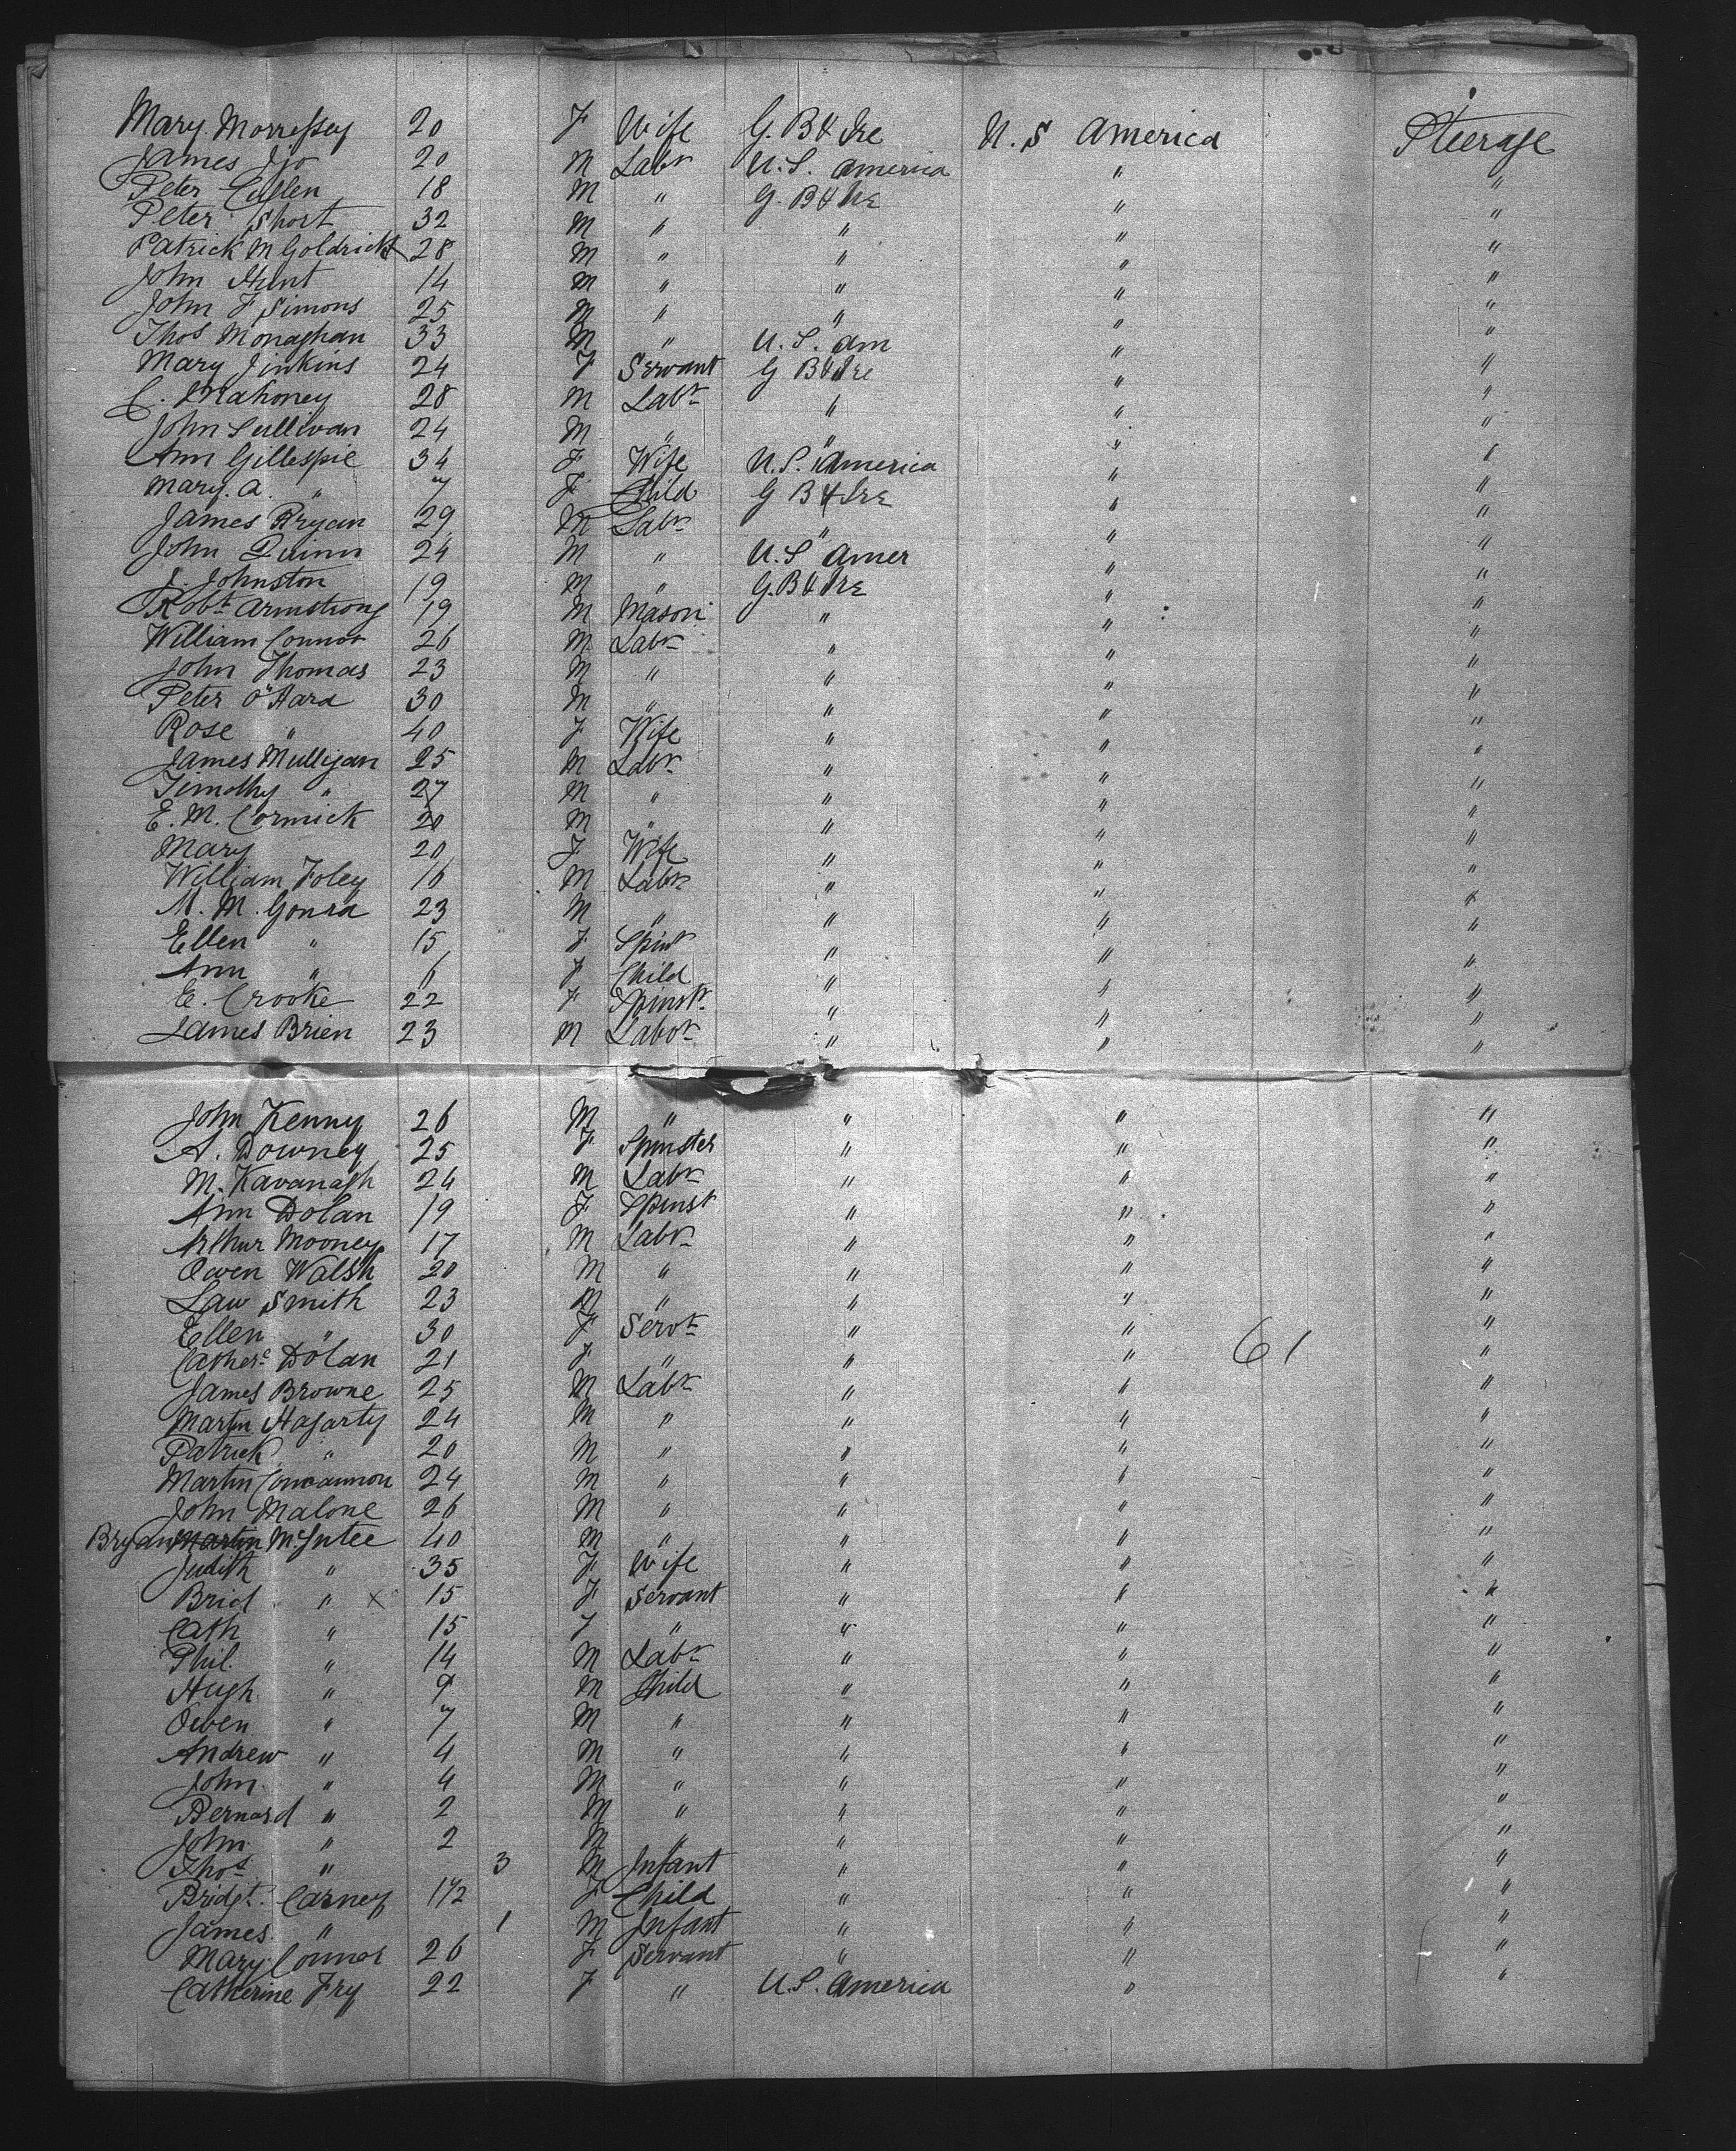 Mary Morressey 20 F Wife G. B & Ire U. S America Steerage
James 20 M Labr U. S. America " "
Peter Cullen 18 M " G. B & Ire " "
Peter Short 32 M " " " "
Patrick McGoldrick 28 M " " " "
John Hunt 14 M " " " "
John F Simons 25 M " " " "
Thos Monaghan 33 M " U. S. Am " "
Mary Jinkins 24 F Servant G B & Ire " "
C. Mahoney 28 M Labr " " "
John Sullivan 24 M " " " "
Ann Gillespie 34 F Wife U. S. America " "
Mary. A. " 7 F Child G B & Ire " "
James Ryan 29 M Labr " " "
John Quinn 24 M " U. S Amer " "
J. Johnston 19 M " G. B & Ire " "
Robt Armstrong 19 M Mason " " "
William Connor 26 M Labr " " "
John Thomas 23 M " " " "
Peter O'Hara 30 M " " " "
Rose " 40 F Wife " " "
James Mulligan 25 M Labr " " "
Timothy " 27 M " " " "
E. M. Cormick 20 M " " " "
Mary 20 F Wife " " "
William Foley 16 M Labr " " "
M. M. Goura 23 M " " " "
Ellen " 15 F Spinr " " "
Ann " 6 F Child " " "
E. Crooke 22 F Spinstr " " "
James Brien 23 M Labor " " "
John Kenny 26 M " " " "
A. Downey 25 F Spinster " " "
M. Kavanagh 24 M Labr " " "
Ann Dolan 19 F Spinst " " "
Arthur Mooney 17 M Labr " " "
Owen Walsh 20 M " " " "
Law Smith 23 M " " " "
Ellen " 30 F Servt " " "
Cathere Dolan 21 F " " " 61 "
James Browne 25 M Labr " " "
Martin Hagarty 24 M " " " "
Patrick " 20 M " " " "
Martin Concannon 24 M " " " "
John Malone 26 M " " " "
Bryan Martin McIntee 40 M " " " "
Judith " 35 F Wife " " "
Brid " x 15 F Servant " " "
Cath " 15 F " " " "
Phil. " 14 M Labr " " "
Hugh " 9 M Child " " "
Owen " 7 M " " " "
Andrew " 4 M " " " "
John " 4 M " " " "
Bernard " 2 M " " " "
John " 2 M " " " "
Thos " 3 M Infant " " "
Bridgt. Carney 1 1/2 F Child " " "
James " 1 M Infant " " "
Mary Connor 26 F Servant " " "
Catherine Fry 22 F " U. S. America " "